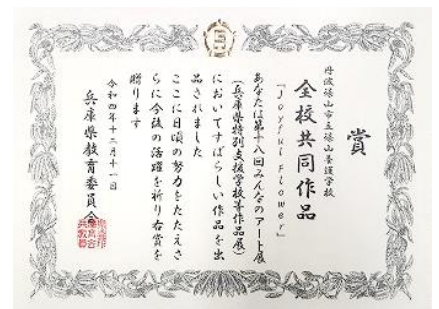 賞
丹波篠山市立篠山養護学校
全校共同作品
「Joyful Flower」
あなたは第十八回みんなのアート展
(兵庫県特別支援学校等作品展)
においてすばらしい作品を出
品されました
ここに日頃の努力をたたえさ
らに今後の活躍を祈り右賞を
贈ります
令和四年十二月十一日
兵庫県教育委員会